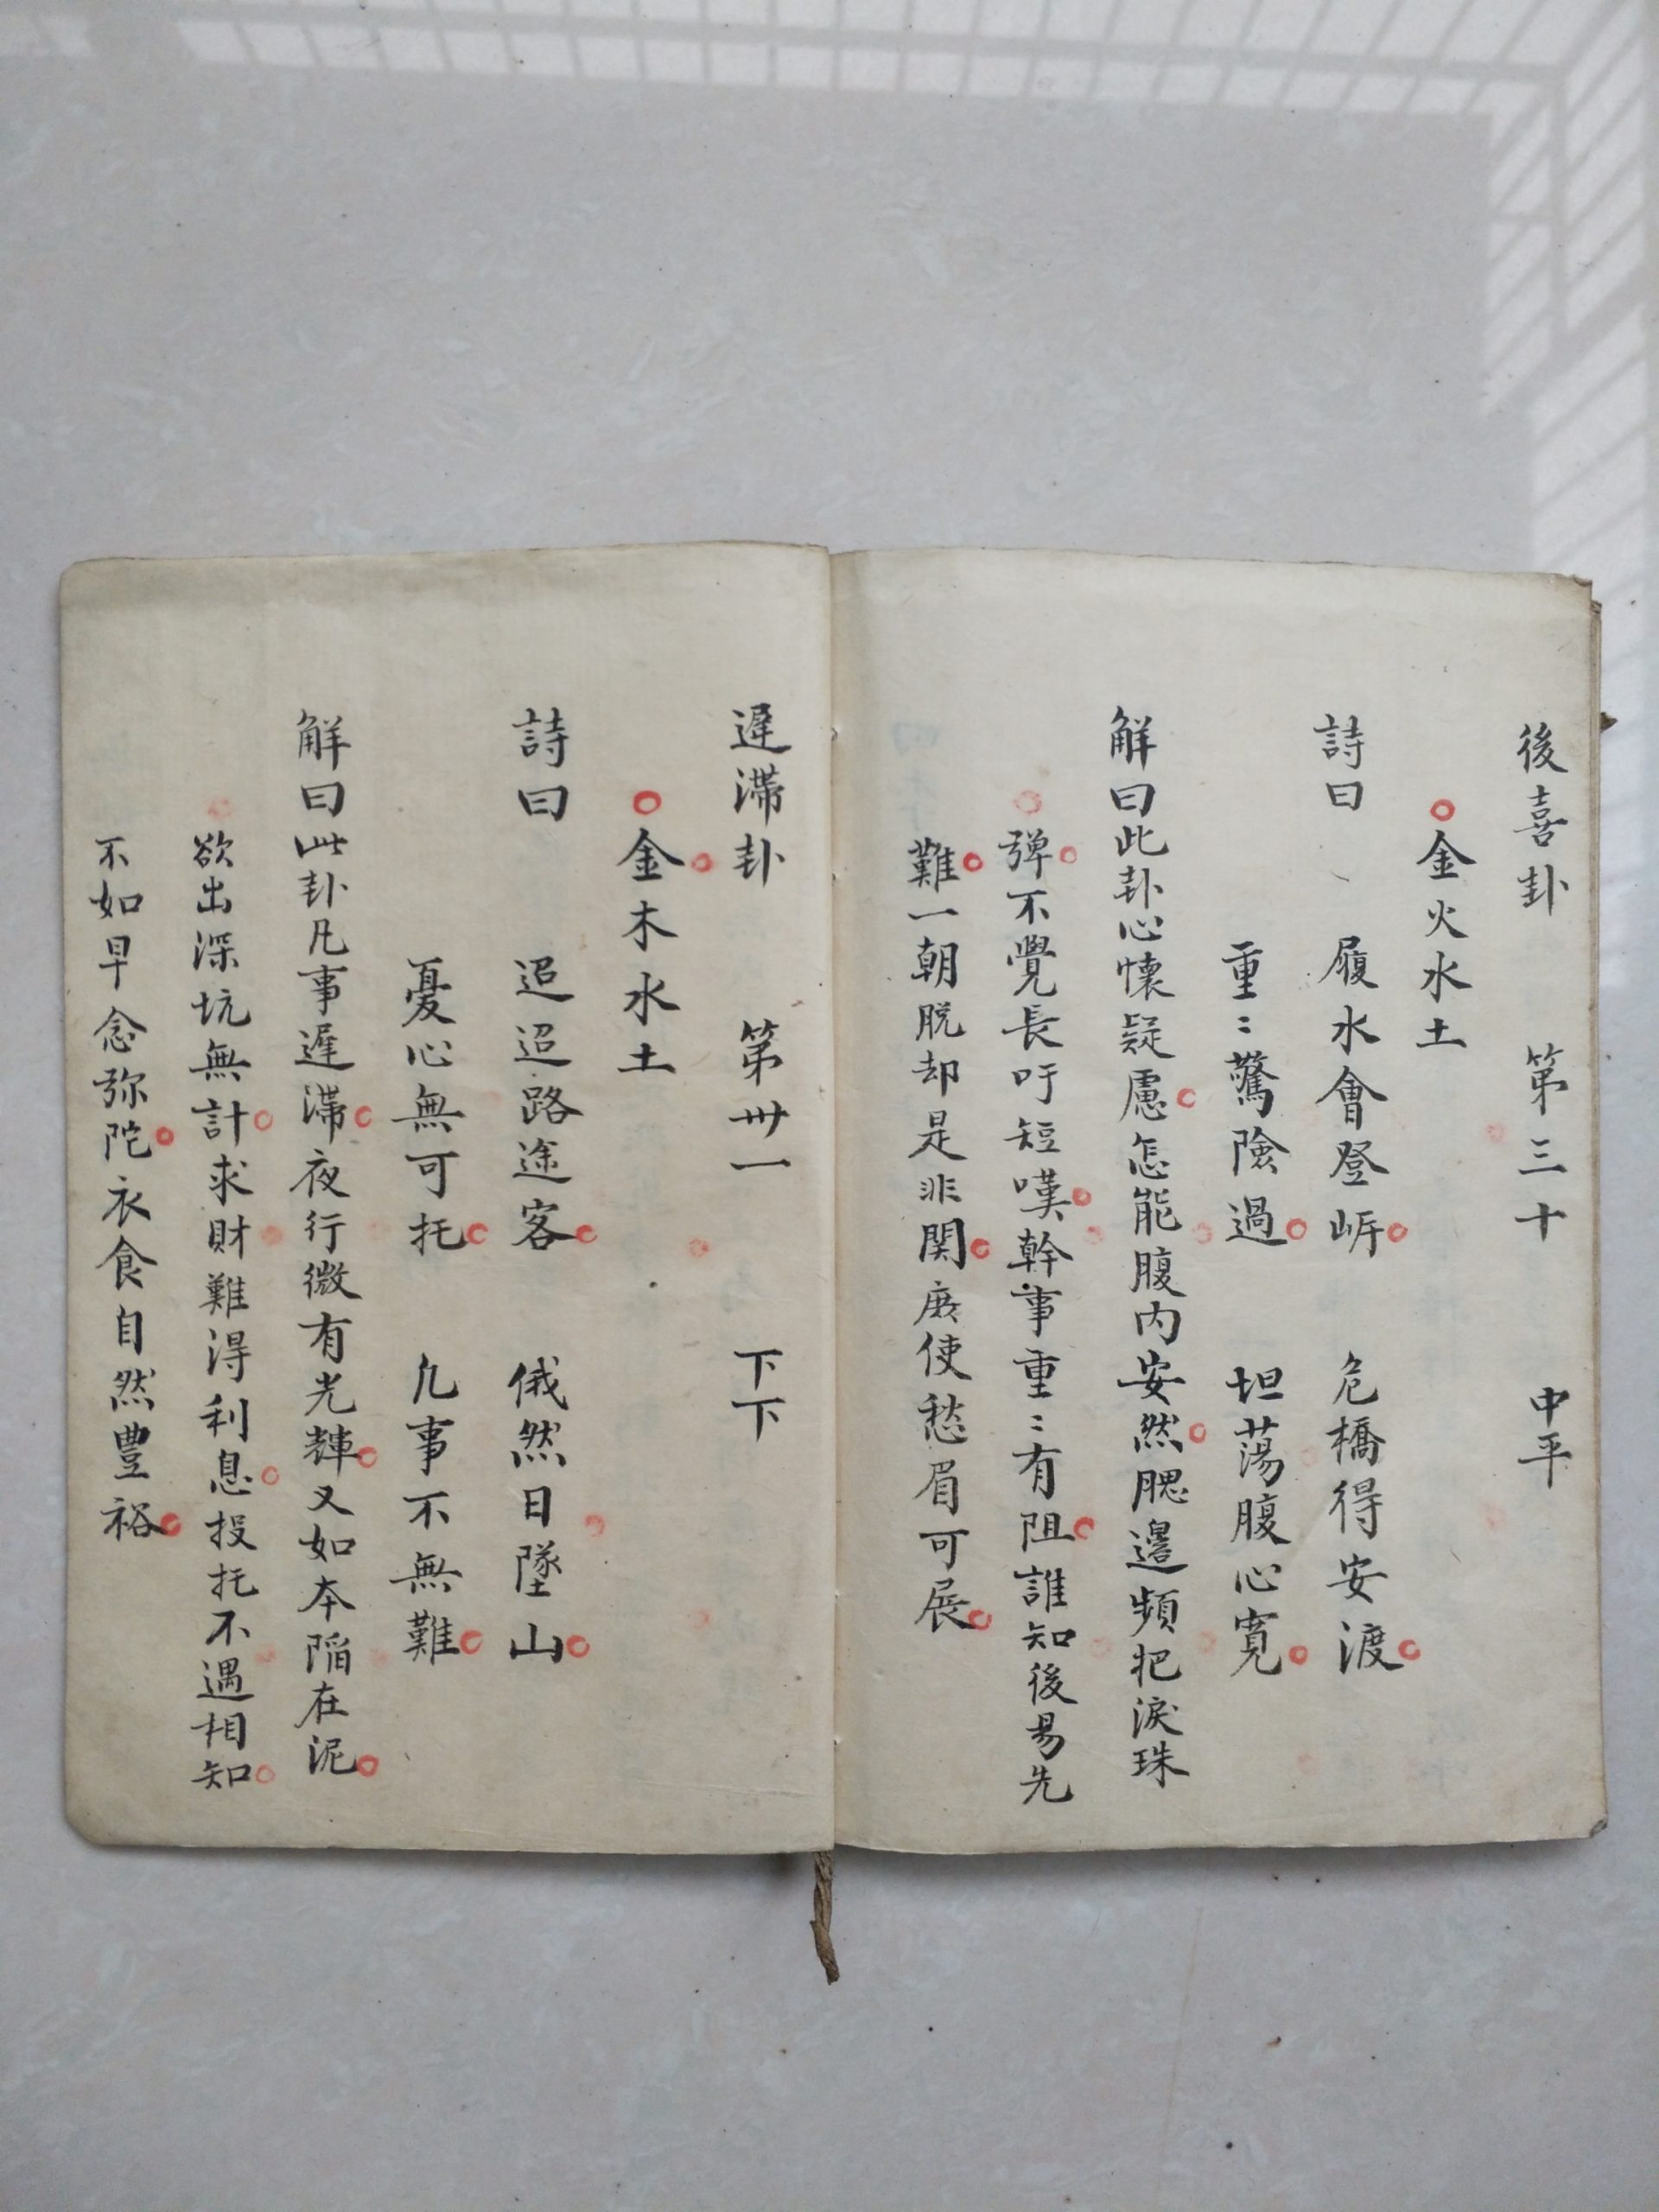 後喜卦 第三十 中平
金火水土
詩曰 履水會登㟁 危橋得安渡
重〻驚險過 坦蕩腹心寬
解曰此卦心懷疑慮怎能腹内安然腮邊頻把淚珠
弾不覺長吁短嘆幹事重〻有阻誰知後易先
難一朝脱却是非関庶使愁眉可展
遲滯卦 第卅一 下下
金木水土
詩曰 迢迢路途客 俄然日墜山
憂心無可托 凢事不無難
解曰此卦凡事遲滯夜行微有光輝又如夲陷在泥
欲出深坑無計求財難淂利息投托不遇相知
不如早念弥陀衣食自然豊裕